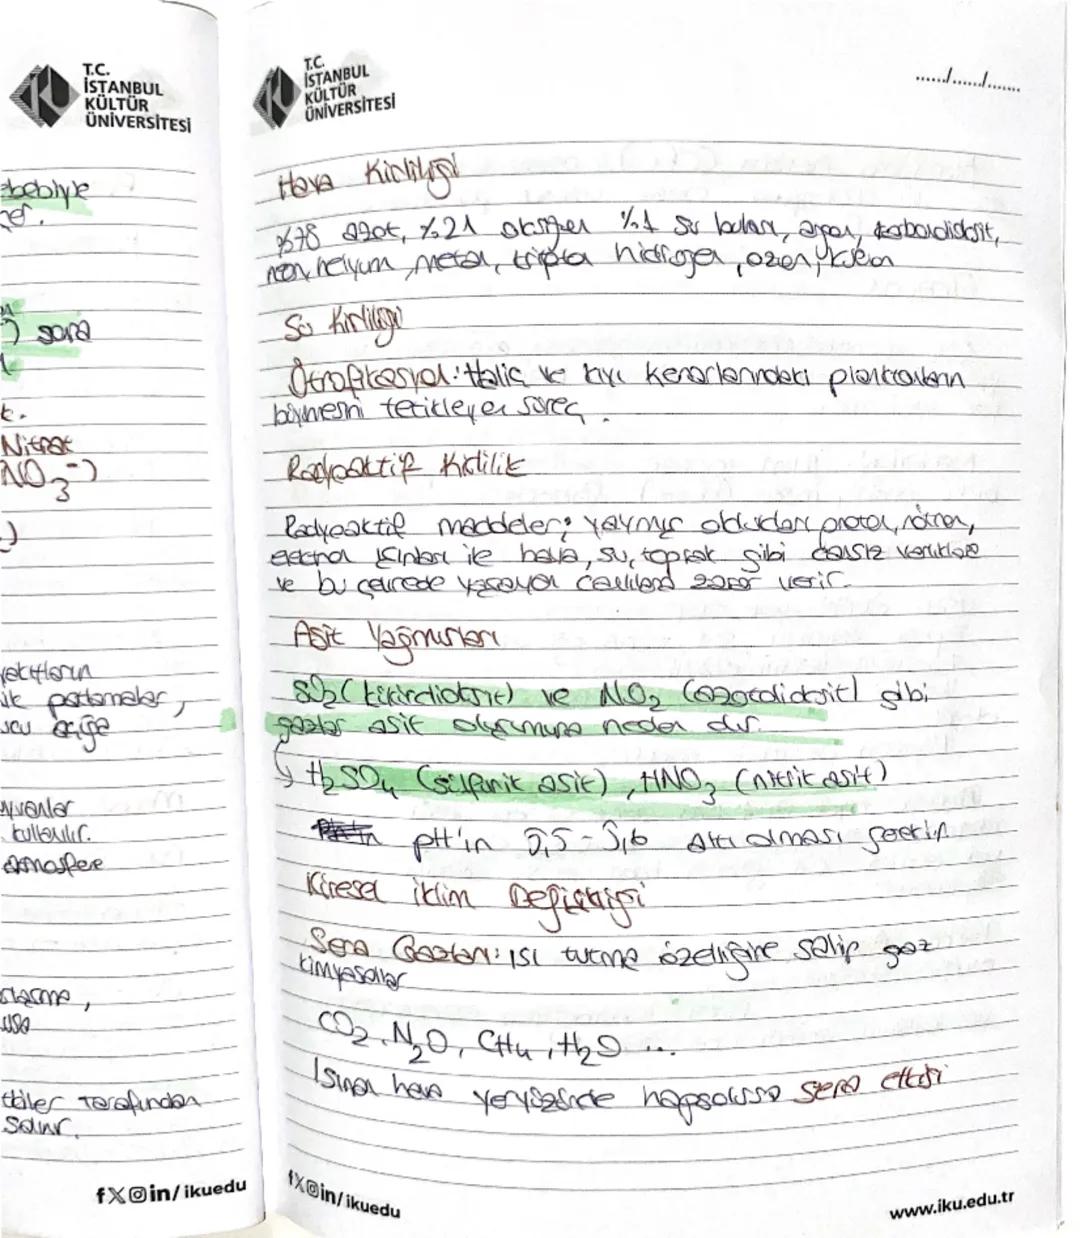 T.C.
İSTANBUL
KÜLTÜR
ÜNİVERSİTESİ
ebebiyle
sonra
Nitrat
NO3-)
k partlamalar,
kullanılır.
atmosfere
tarafından
f X in/ ikuedu
T.C.
İSTANBUL
KÜLTÜR
ÜNİVERSİTESİ
....../....../.......
Hava Kirliliği
%78 azot, %21 oksijen %1 su buharı, argon, karbondioksit,
neon, helyum, metan, kripton hidrojen, ozon, ksenon
Su Kirliliği
Ötrofikasyon: Haliç ve kıyı kenarlarındaki planktonların
büyümesini tetikleyen süreç.
Radyoaktif Kirlilik
Radyoaktif maddeler; yaymış oldukları proton, nötron,
elektron ışınları ile hava, su, toprak gibi cansız varlıklara
ve bu çevrede yaşayan canlılara zarar verir.
Asit Yağmurları
SO2 (kükürtdioksit) ve NO2 (azotdioksit) gibi
gazlar asit oluşumuna neden olur.
↳ H2SO4 (sülfürik asit), HNO3 (nitrik asit)
pH'in 5,5 - 5,6 altı olması gerekir
Küresel İklim Değişikliği
Sera Gazları: ısı tutma özelliğine sahip gaz
kimyasallar
CO2, N2O, CH4, H2O ...
Isınan hava yeryüzünde hapsolursa sera etkisi
f X in/ ikuedu
www.iku.edu.tr